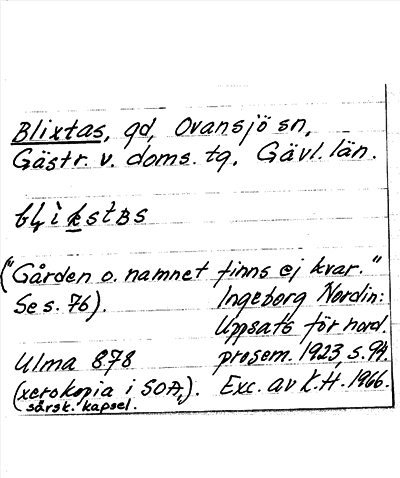 Blixtas, gd, Ovansjö sn,
Gästr. v. doms. tg. Gävl. län.
("Gården o. namnet finns ej kvar."
Se s. 76). Ingeborg Nordin:
Uppsats för nord.
Ulma 878 prosem. 1923, s. 94.
(xerokopia i SOA,). Exc. av K.H. 1966.
särsk. kapsel.